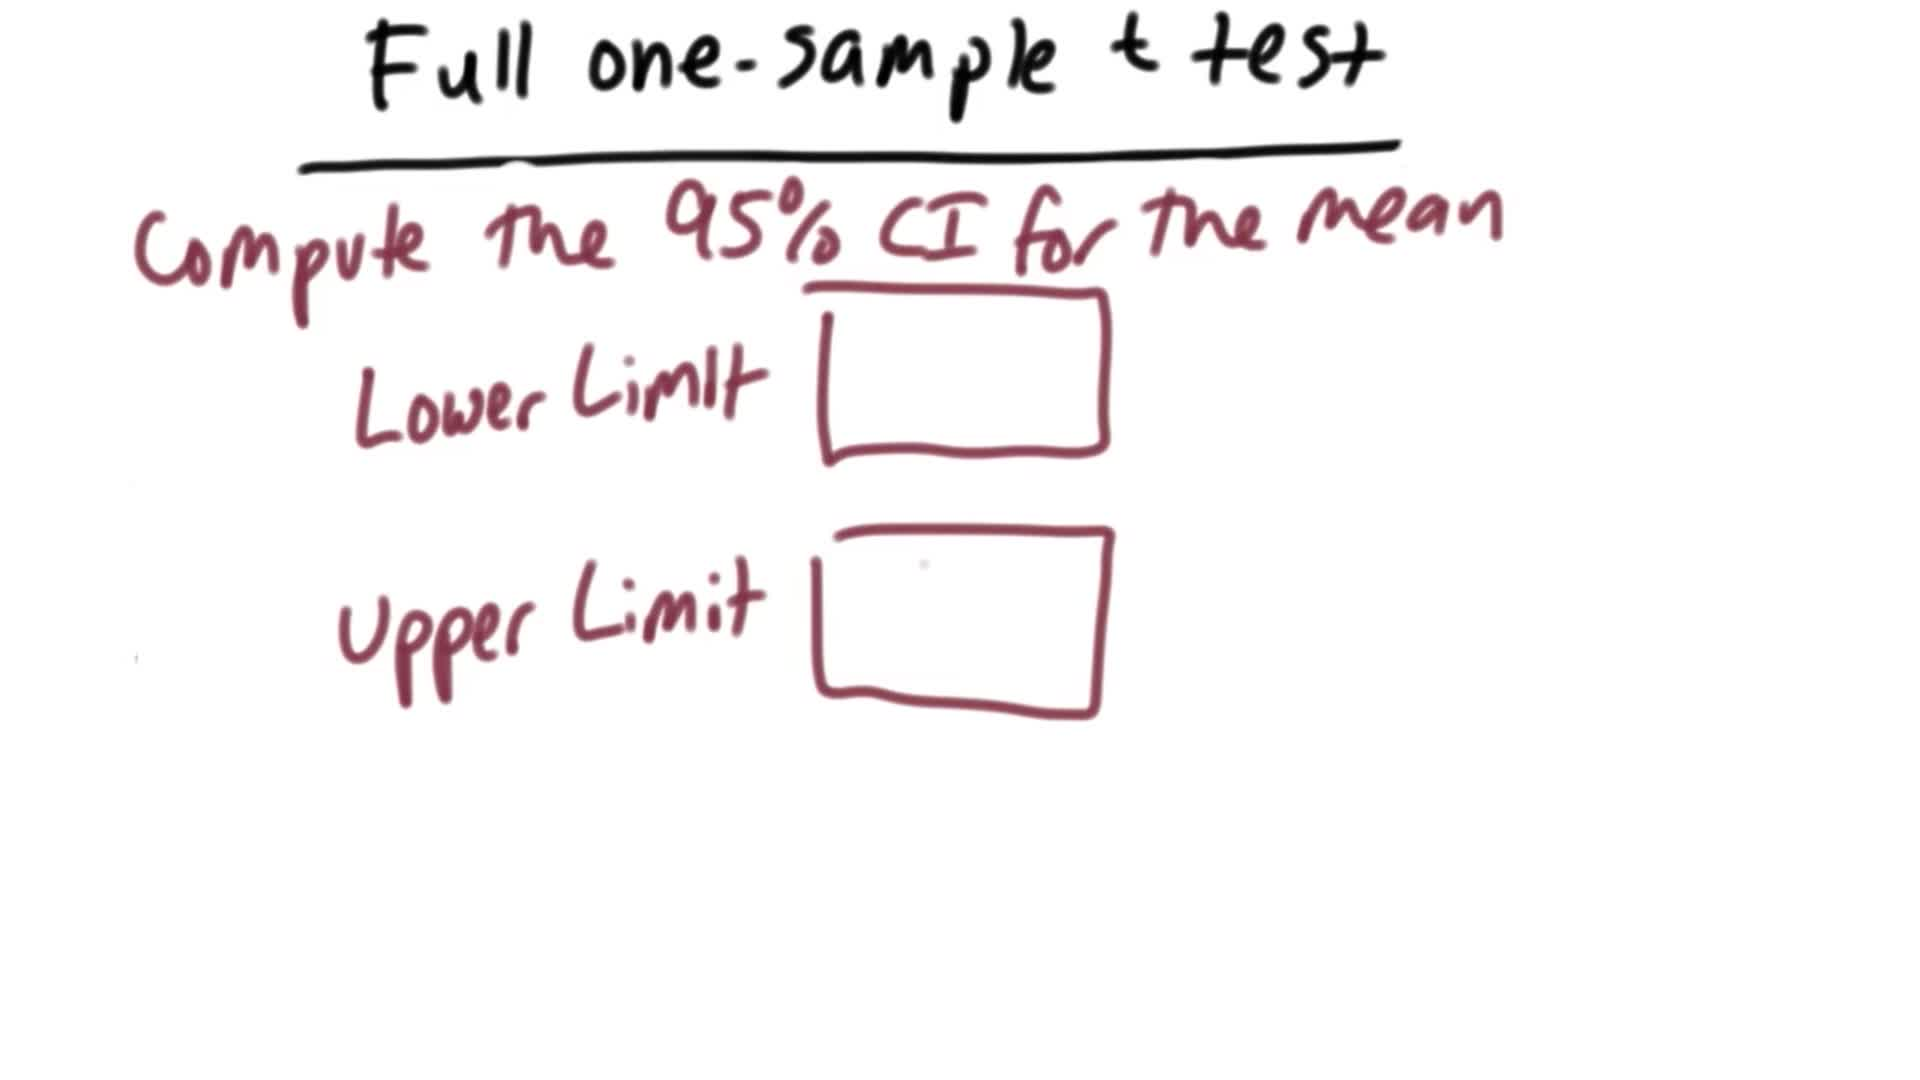 Full one-sample t test
Compute the 95% CI for the mean
Lower Limit
Upper Limit